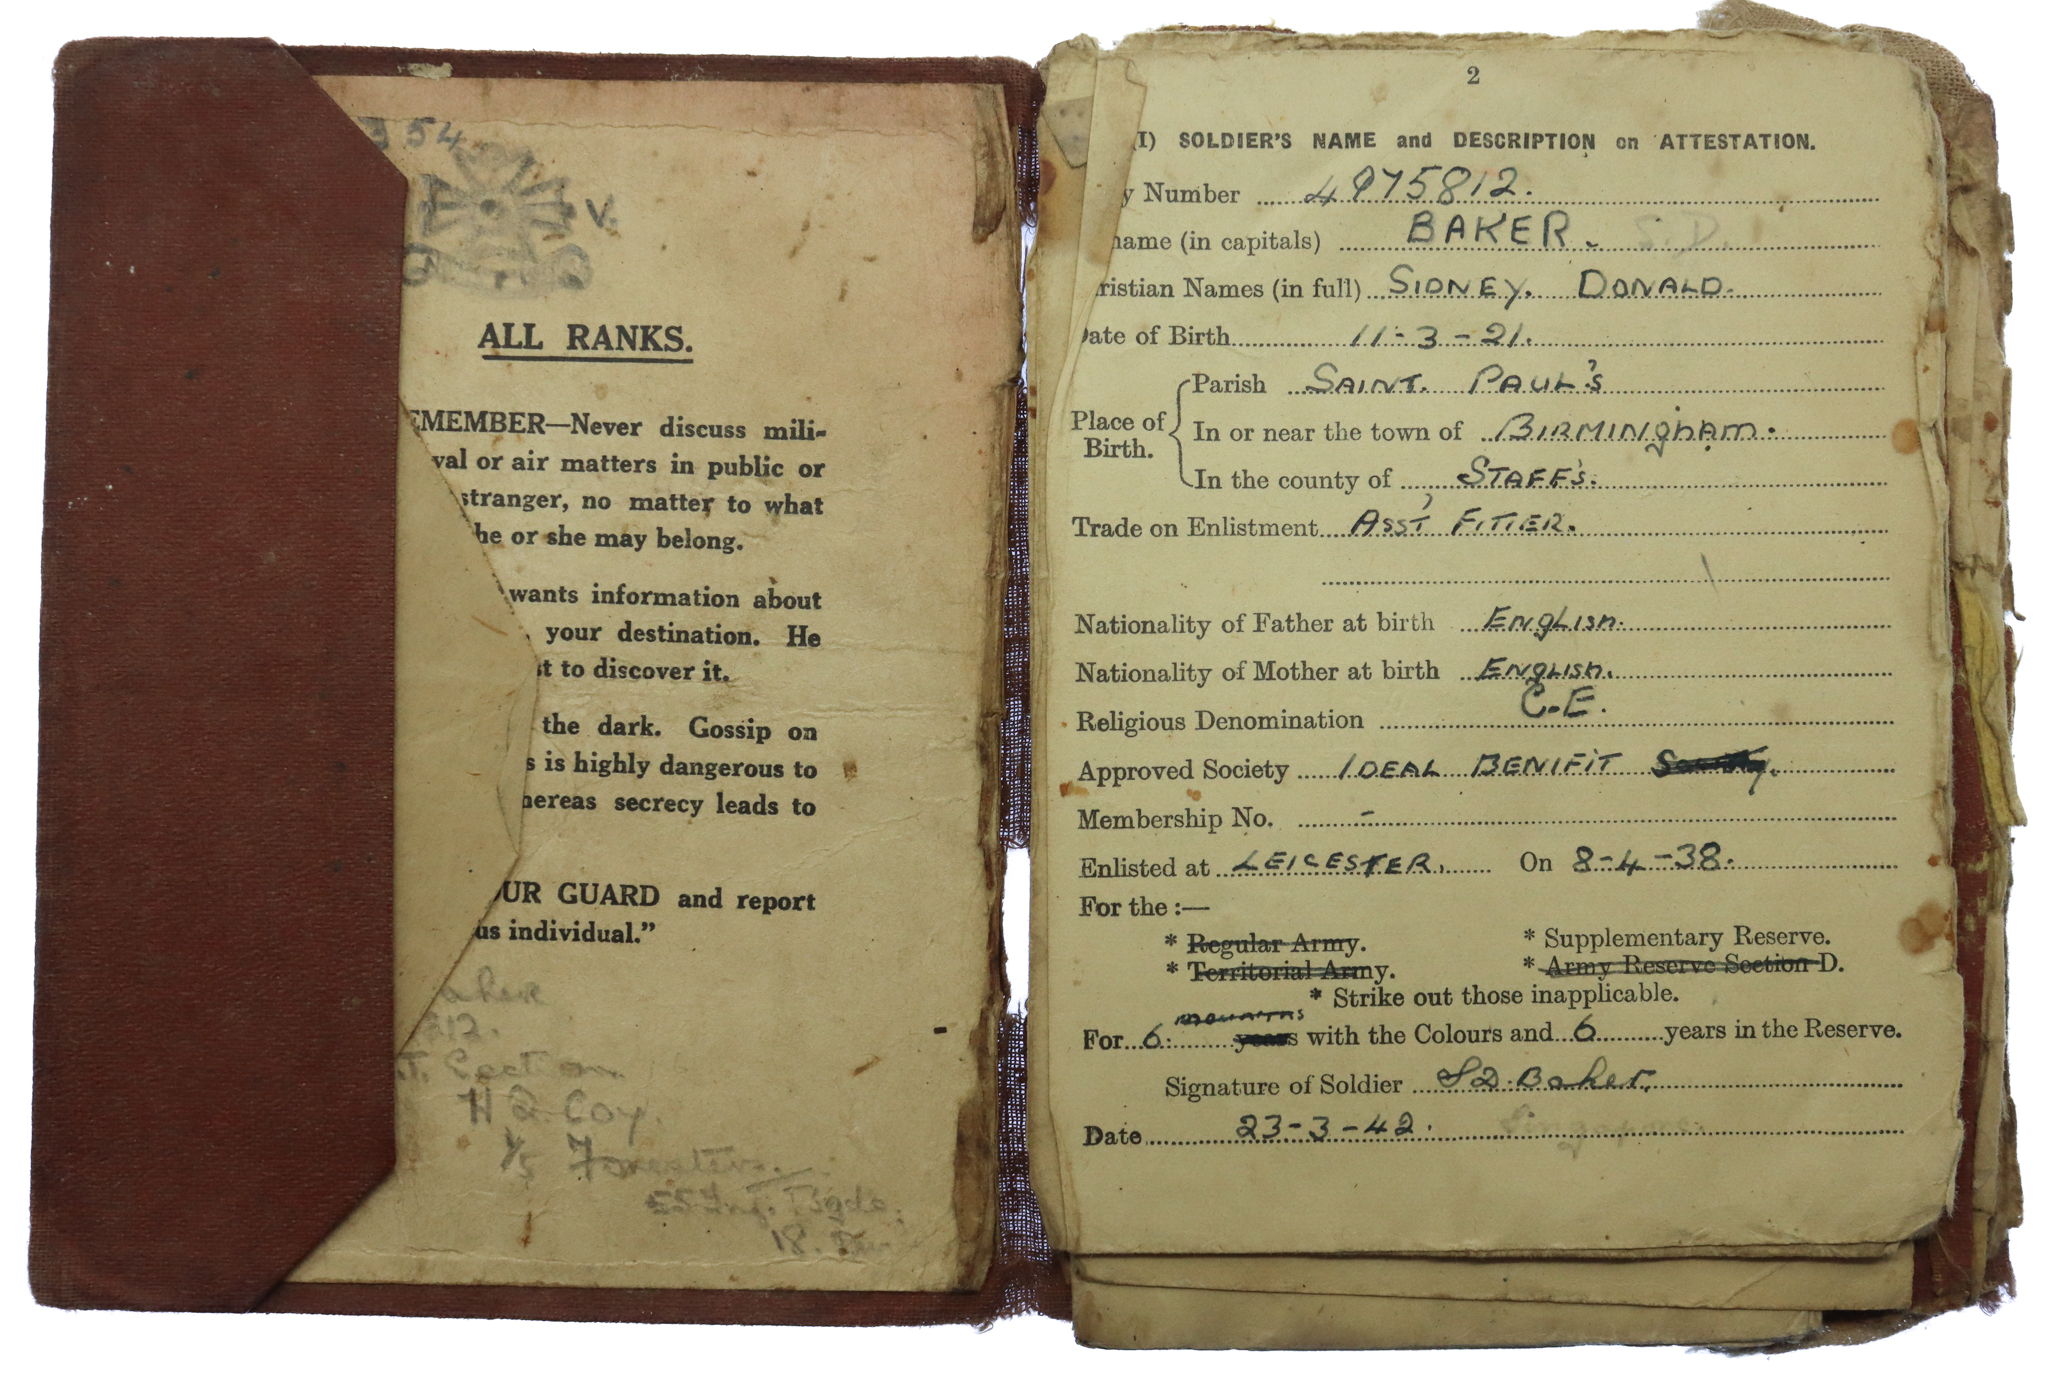 354
V.
ALL RANKS.
EMEMBER—Never discuss mili-
val or air matters in public or
stranger, no matter to what
he or she may belong.
wants information about
, your destination. He
st to discover it.
the dark. Gossip on
s is highly dangerous to
hereas secrecy leads to
OUR GUARD and report
us individual.”
aker
812.
.T. Section
H Q Coy.
1/5 Foresters.
55 Inf. Bgde.
18. Div
2
(I) SOLDIER'S NAME and DESCRIPTION on ATTESTATION.
y Number 4975812.
name (in capitals) BAKER. S.D.
ristian Names (in full) SIDNEY. DONALD.
Date of Birth 11-3-21.
Place of Birth. Parish SAINT. PAUL'S
In or near the town of BIRMINghAM.
In the county of STAFF'S.
Trade on Enlistment ASS'T FITTER.
Nationality of Father at birth ENgLISh.
Nationality of Mother at birth ENgLISh.
Religious Denomination C.E.
Approved Society IDEAL BENIFIT Society.
Membership No. -
Enlisted at LEICESTER. On 8-4-38.
For the :—
* Regular Army. * Supplementary Reserve.
* Territorial Army. * Army Reserve Section D.
* Strike out those inapplicable.
mounths
For 6. years with the Colours and 6 years in the Reserve.
Signature of Soldier S D. Baker.
Date 23-3-42. Singapore.